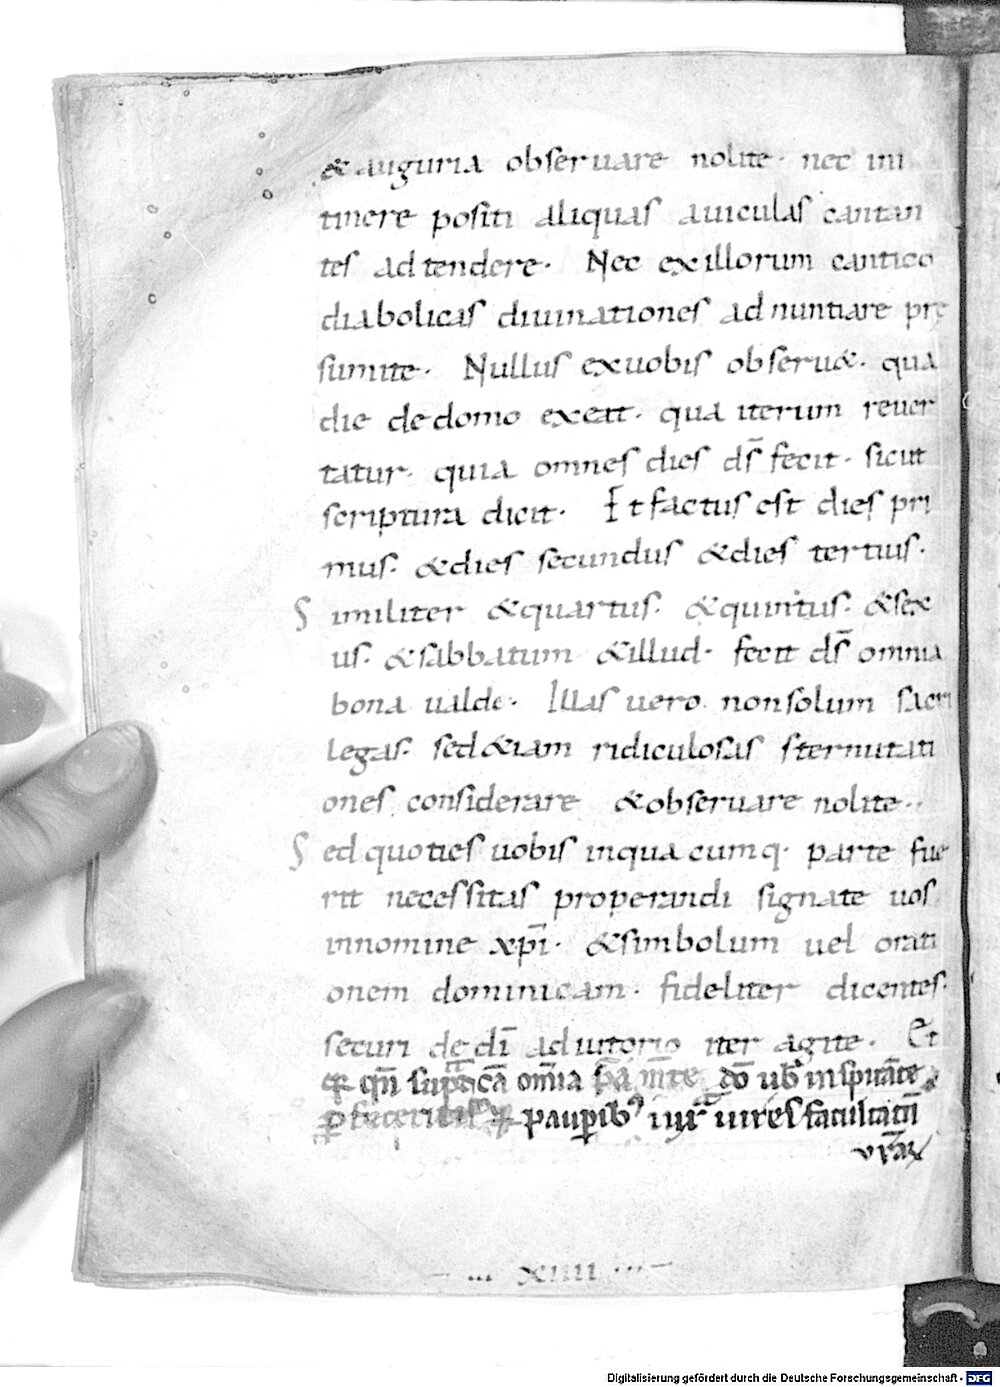 & auguria obseruare nolite· nec in i
tinere positi aliquas auiculas cantan
tes adtendere· Nec exillorum cantico
diabolicas diuinationes adnuntiare pre
sumite· Nullus exuobis obseru&· qua
die dedomo exeat· qua iterum reuer
tatur· quia omnes dies ds̄ fecit· sicut
scriptura dicit· Et factus est dies pri
mus· &dies secundus &dies tertius·
Similiter &quartus· &quintus· &sex
us· &sabbatum &illud· fecit ds̄ omnia
bona ualde· Illas uero nonsolum sacri
legas· sed&iam ridiculosas sternutati
ones considerare &obseruare nolite··
Sed quoties uobis inqua cumq· parte fue
rit necessitas properandi signate uos
innomine xp̄i· &simbolum uel orati
onem dominicam· fideliter dicentes·
securi de dī adiutorio iter agite· Et
qn̄ omīa dō ub inspirāte
paupib⁹ iux̄ uires facultatū
urāꝝ
XIIII
Digitalisierung gefördert durch die Deutsche Forschungsgemeinschaft - DFG